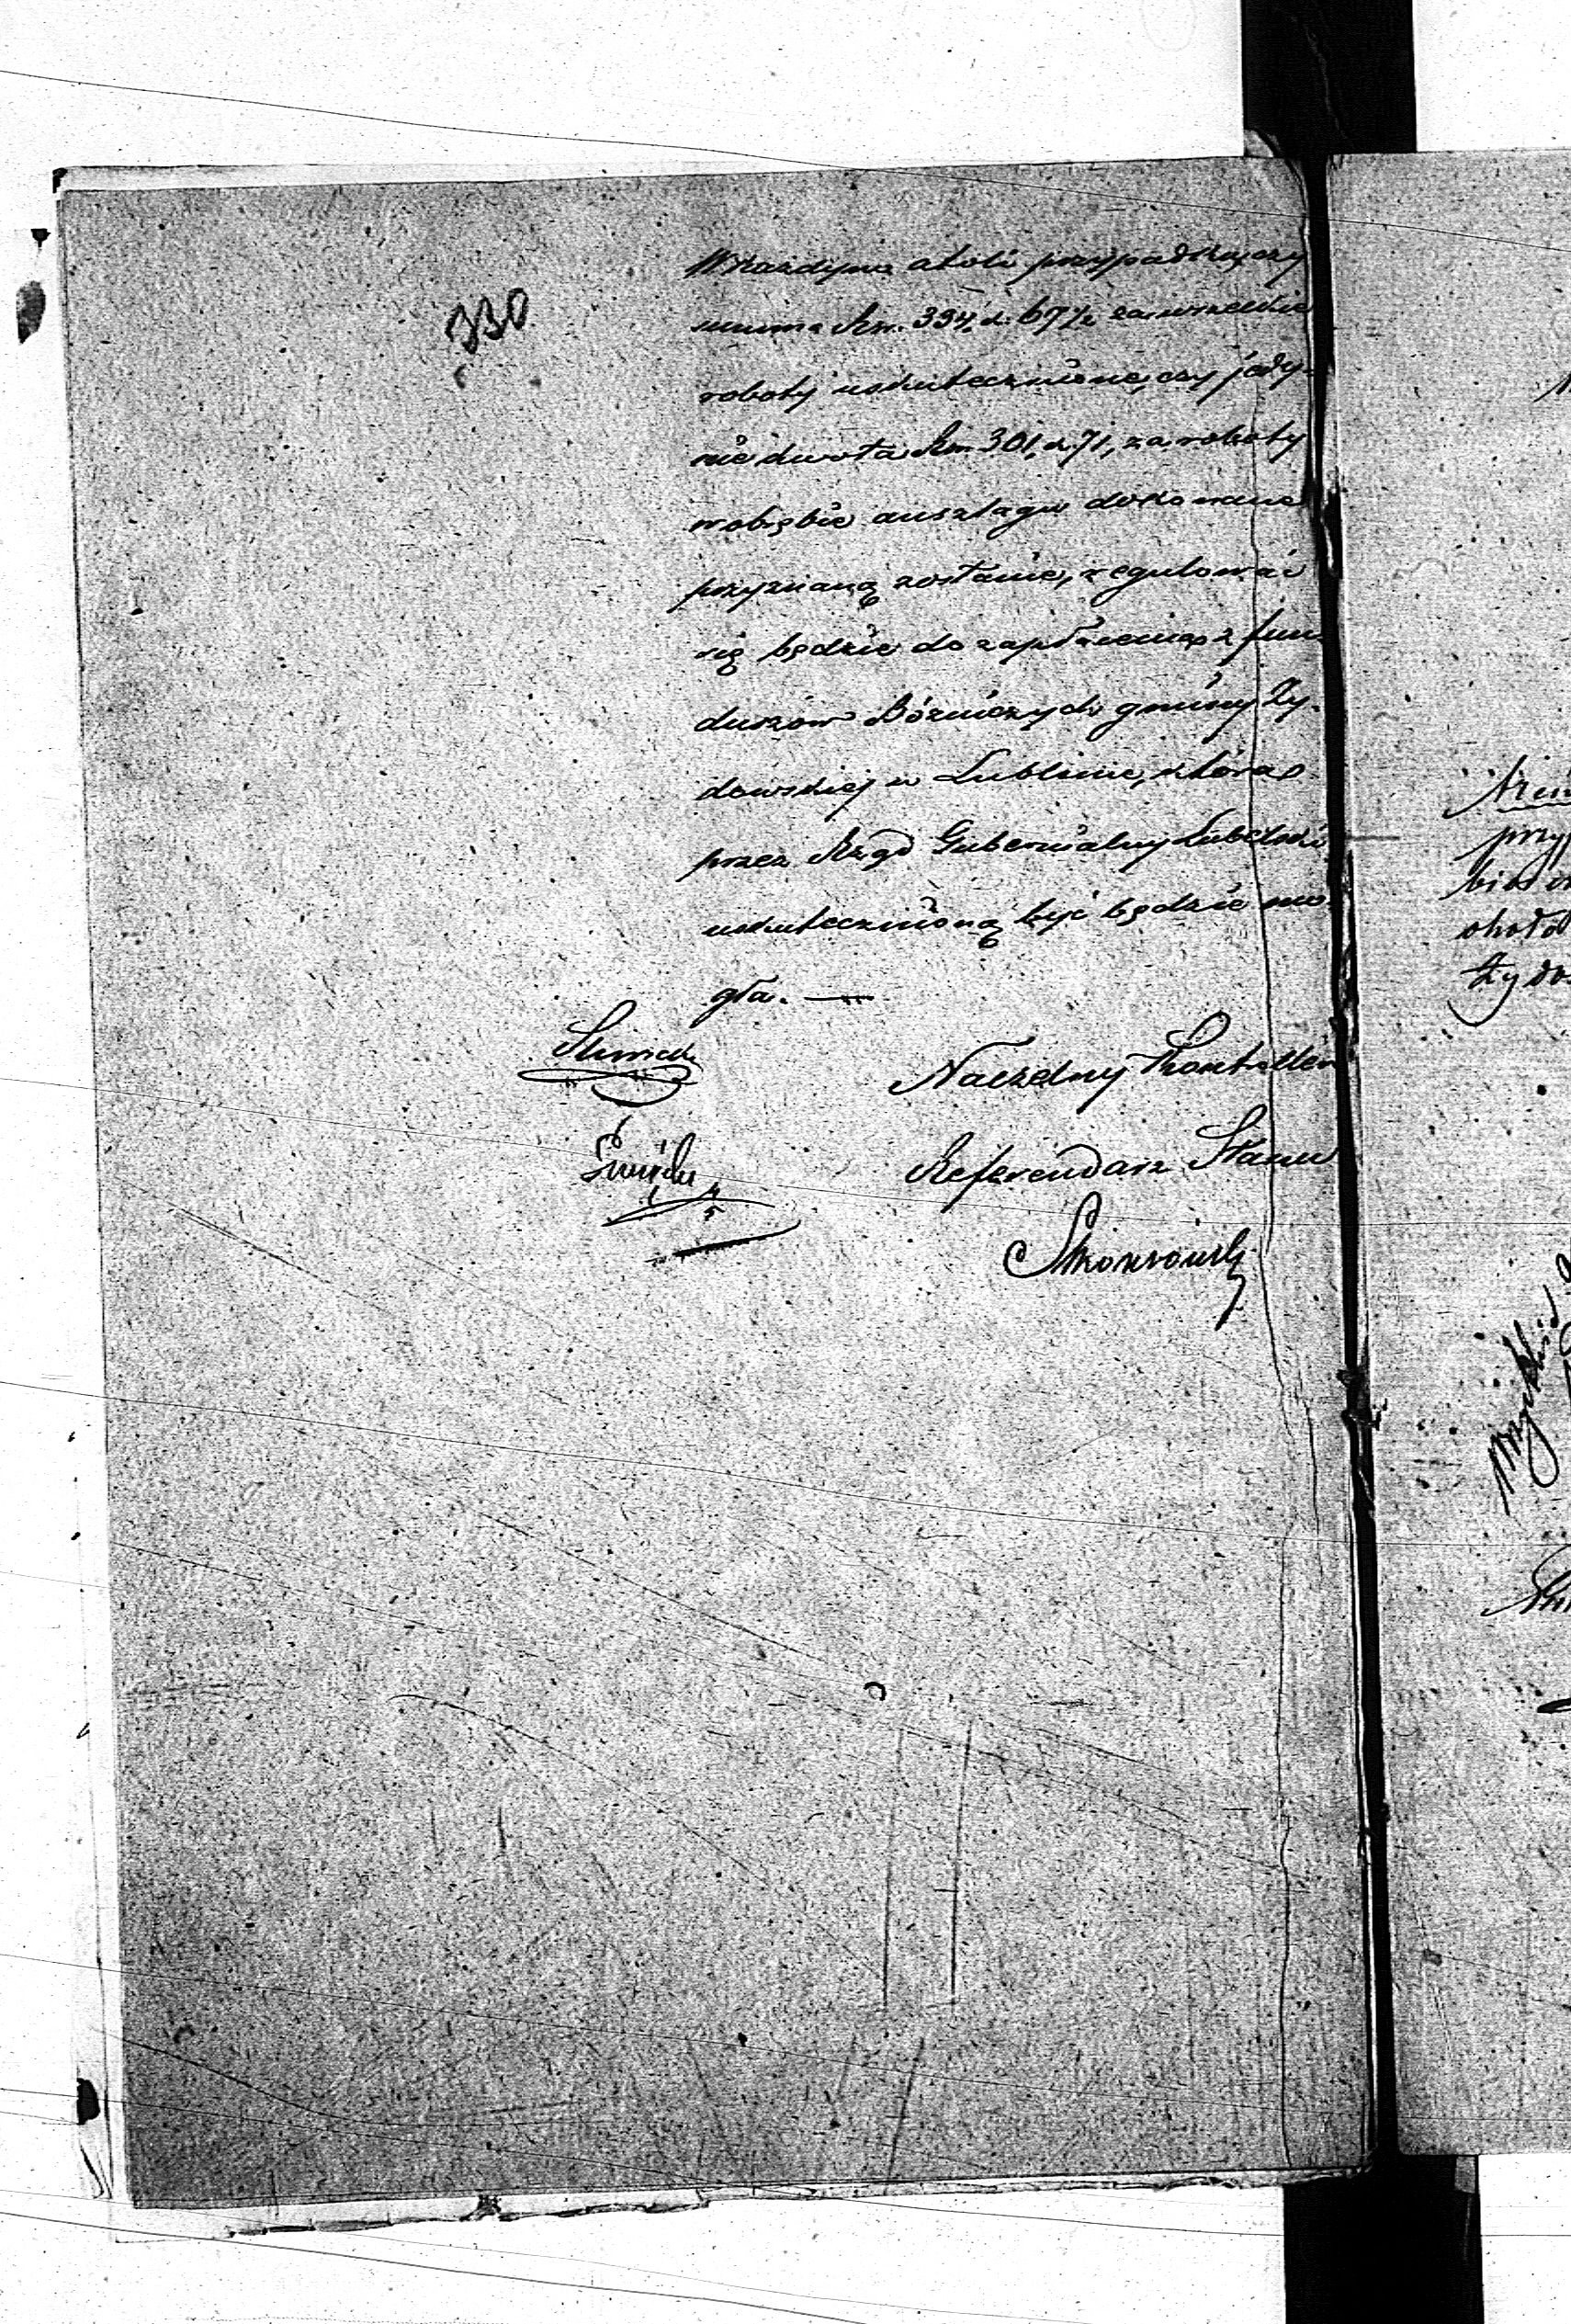 330
W każdym atoli przypadku, czy
summa Rsr. 394, k. 67½ za wszelkie
roboty uskutecznione, czy jedy-
nie kwota Rsr. 301, k. 71, za roboty
w obrębie anszlagu dokonane
przyznaną zostanie, regulować
się będzie do zapłacenia z fun-
duszów Bóżniczych gminy Ży-
dowskiej w Lublinie, która
przez Rząd Gubernialny Lubelski
uskutecznioną być będzie mo-
gła. —
Naczelny Kontroller
Referendarz Stanu
przy
okoł
Żydo